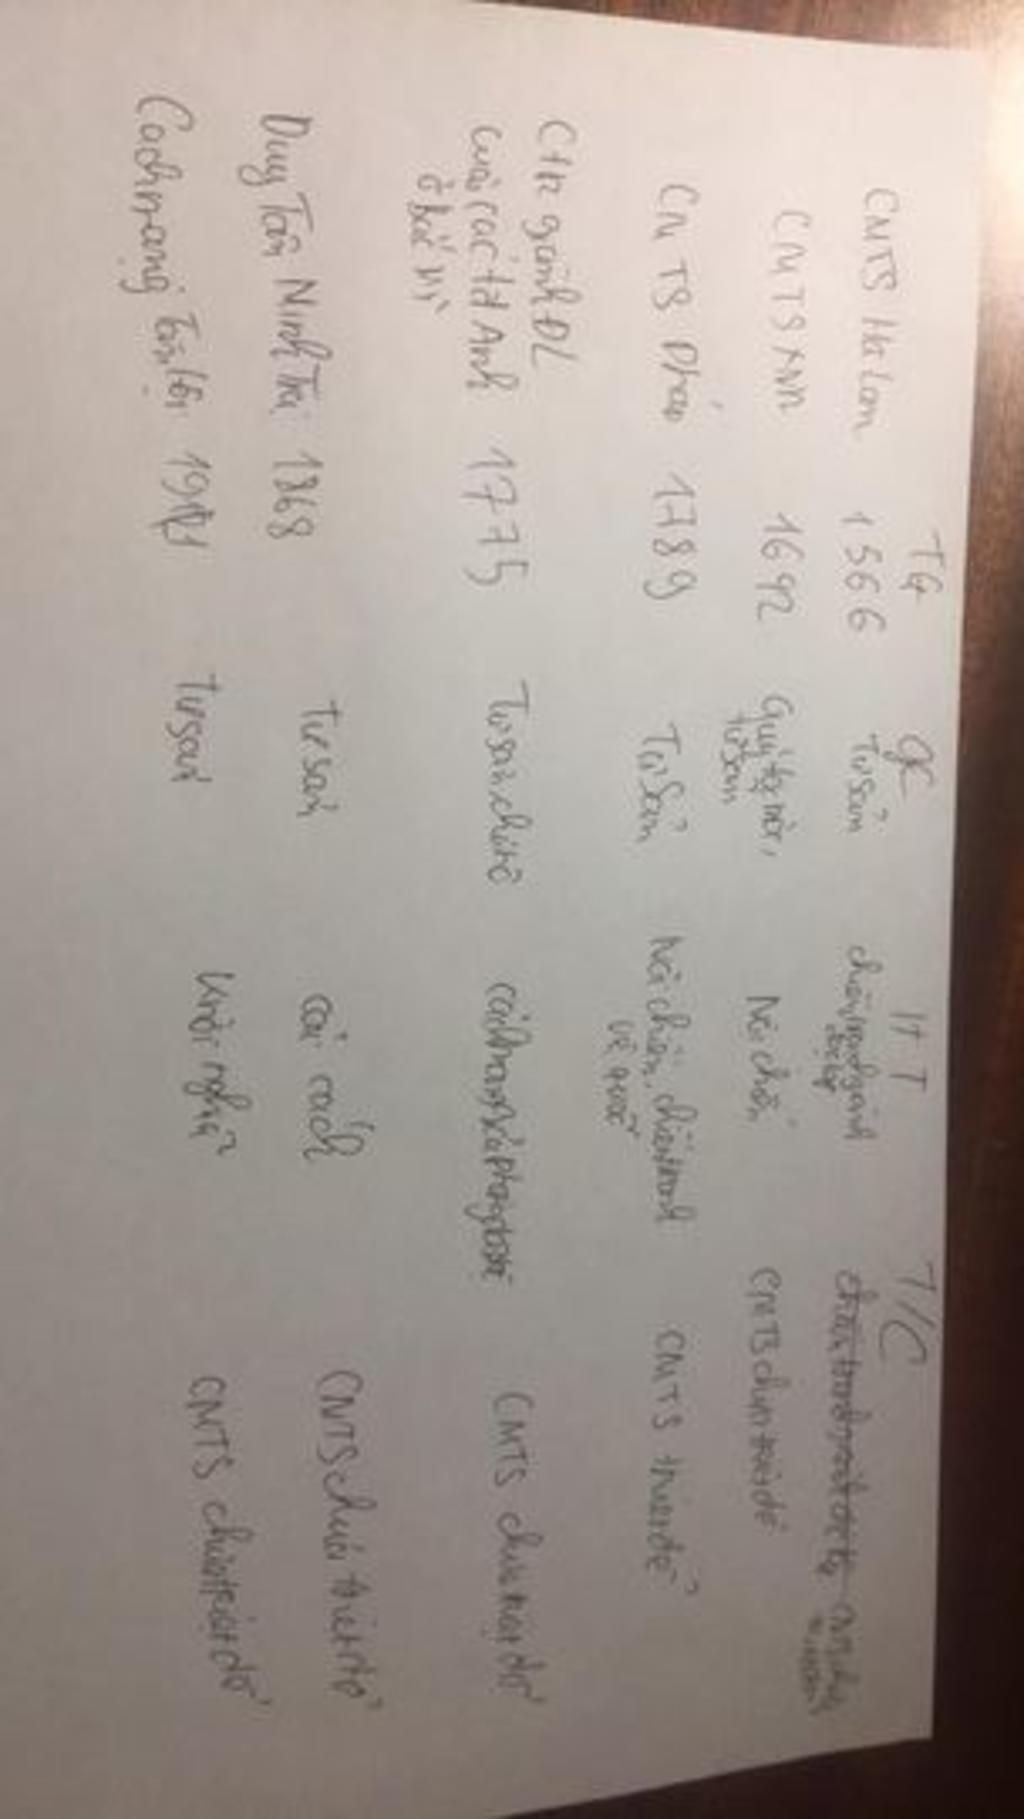 TG GC HT T/C
CMTS Hà Lan 1566 Tư sản chiến tranh giành
độc lập
CMTS 1692 Quý tộc mới, Nội chiến CMTS chưa triệt để
tư sản
CMTS Pháp 1789 Tư Sản Nội chiến, chiến tranh CMTS triệt để
vệ quốc
giành ĐL
của các tđ Anh 1775 Tư sản, chủ nô CMTS chưa triệt để
ở Bắc Mĩ
Duy Tân Minh Trị 1868 tư sản cải cách CMTS chưa triệt để
Cách mạng Tân Hợi Tư sản khởi nghĩa CMTS chưa triệt để